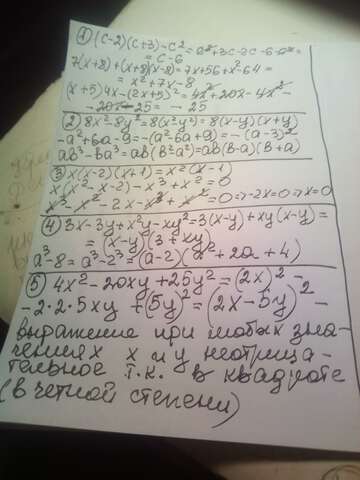 ① (c-2)(c+3)-c²=c²+3c-2c-6-c²=
= c-6
7(x+8)+(x+8)(x-8)=7x+56+x²-64=
= x²+7x-8
(x+5)4x-(2x+5)²=4x²+20x-4x²-
-20x-25=-25
② 8x²-8y²=8(x²-y²)=8(x-y)(x+y)
-a²+6a-9=-(a²-6a+9)=-(a-3)²
ab³-ba³=ab(b²-a²)=ab(b-a)(b+a)
③ x(x-2)(x+1)=x²(x-1)
x(x²-x-2)-x³+x²=0
x³-x²-2x-x³+x²=0⇒-2x=0⇒x=0
④ 3x-3y+x²y-xy²=3(x-y)+xy(x-y)=
= (x-y)(3+xy)
a³-8=a³-2³=(a-2)(a²+2a+4)
⑤ 4x²-20xy+25y²=(2x)²-
-2·2·5xy+(5y)²=(2x-5y)²-
выражение при любых зна-
чениях x и y неотрица-
тельное т.к. в квадрате
(в четной степени)